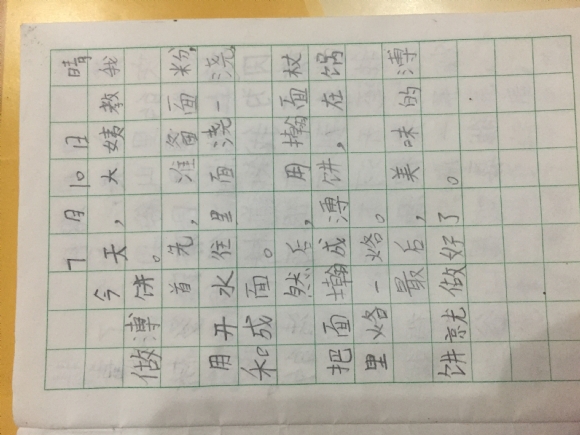 7月10日 晴
今天，大姨教我
做溥饼。
首先，准备面粉，
用开水住里面浇一浇，
和成面。
然后，用擀面杖
把面擀成溥饼，在锅
里烙一烙。
最后，美味的溥
饼就做好了。